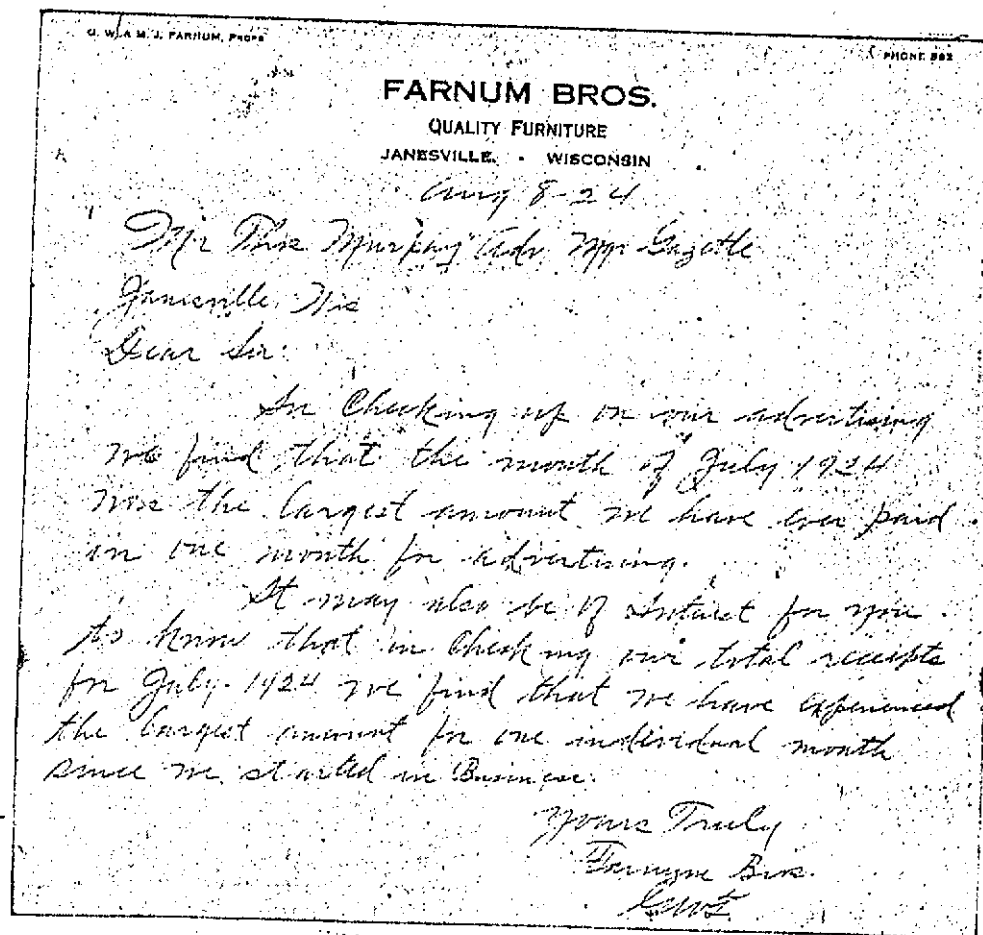 G. W. & M. J. FARNUM, PROPS
PHONE
FARNUM BROS.
QUALITY FURNITURE
JANESVILLE. - WISCONSIN
Aug 8-24
Mr Thos Murphy Adv Mgr Gazette
Janesville, Wis
Dear Sir:
In Checking up on our advertising
we find that the month of July 1924
was the largest amount we have ever paid
in one month for advertising.
It may also be of Interest for you
to know that in Checking our total receipts
for July 1924 we find that we have experienced
the largest amount for one individual month
since we started in Business.
Yours Truly
Farnum Bros.